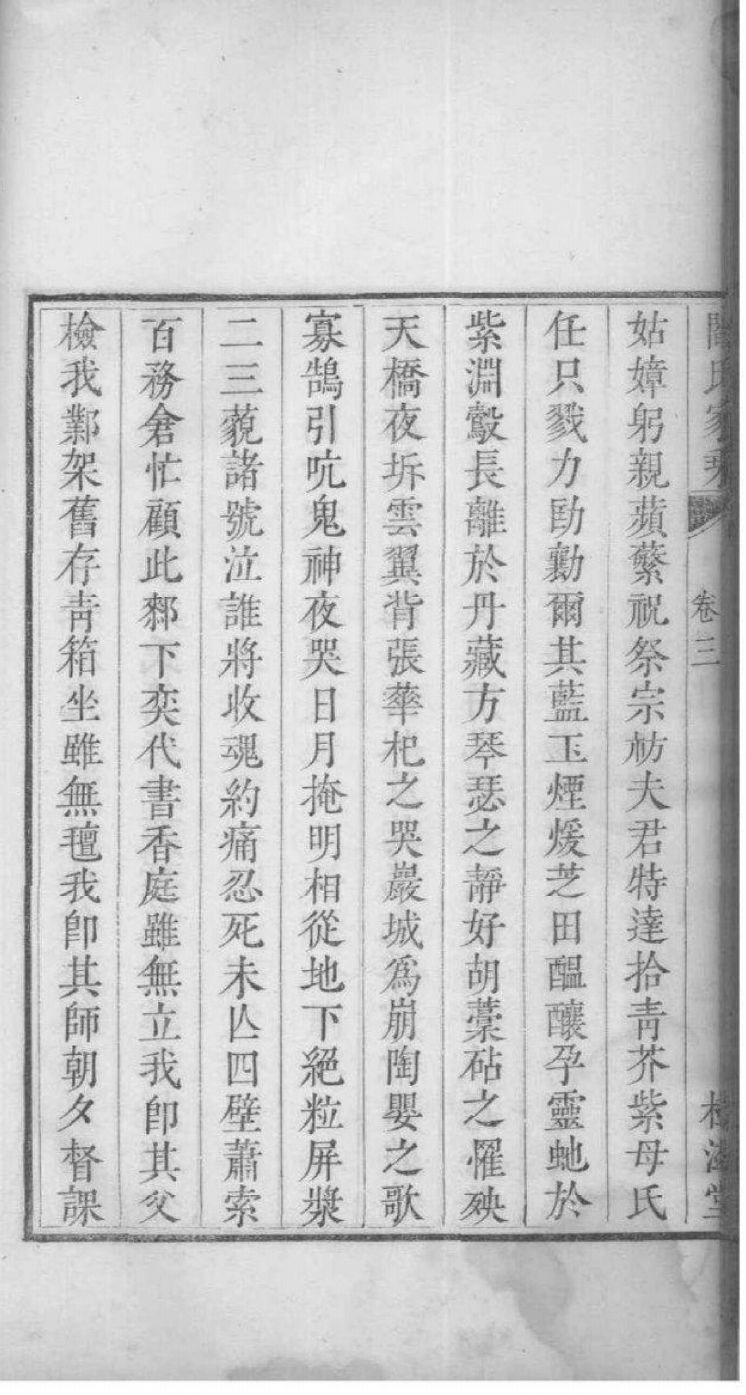 氏家 卷三 堂
姑嫜躬親蘋蘩祝祭宗祊夫君特達拾靑芥紫母氏
任只戮力劻勷爾其藍玉煙煖芝田醞釀孕靈虵於
紫淵鷇長離於丹藏方琴瑟之靜好胡藁砧之罹殃
天橋夜坼雲翼背張華杞之哭嚴城爲崩陶嬰之歌
寡鵠引吭鬼神夜哭日月掩明相從地下絕粒屏漿
二三藐諸號泣誰將收魂約痛忍死未亾四壁蕭索
百務倉忙顧此鄴下奕代書香庭雖無立我卽其父
檢我鄴架舊存靑箱坐雖無氊我卽其師朝夕督課